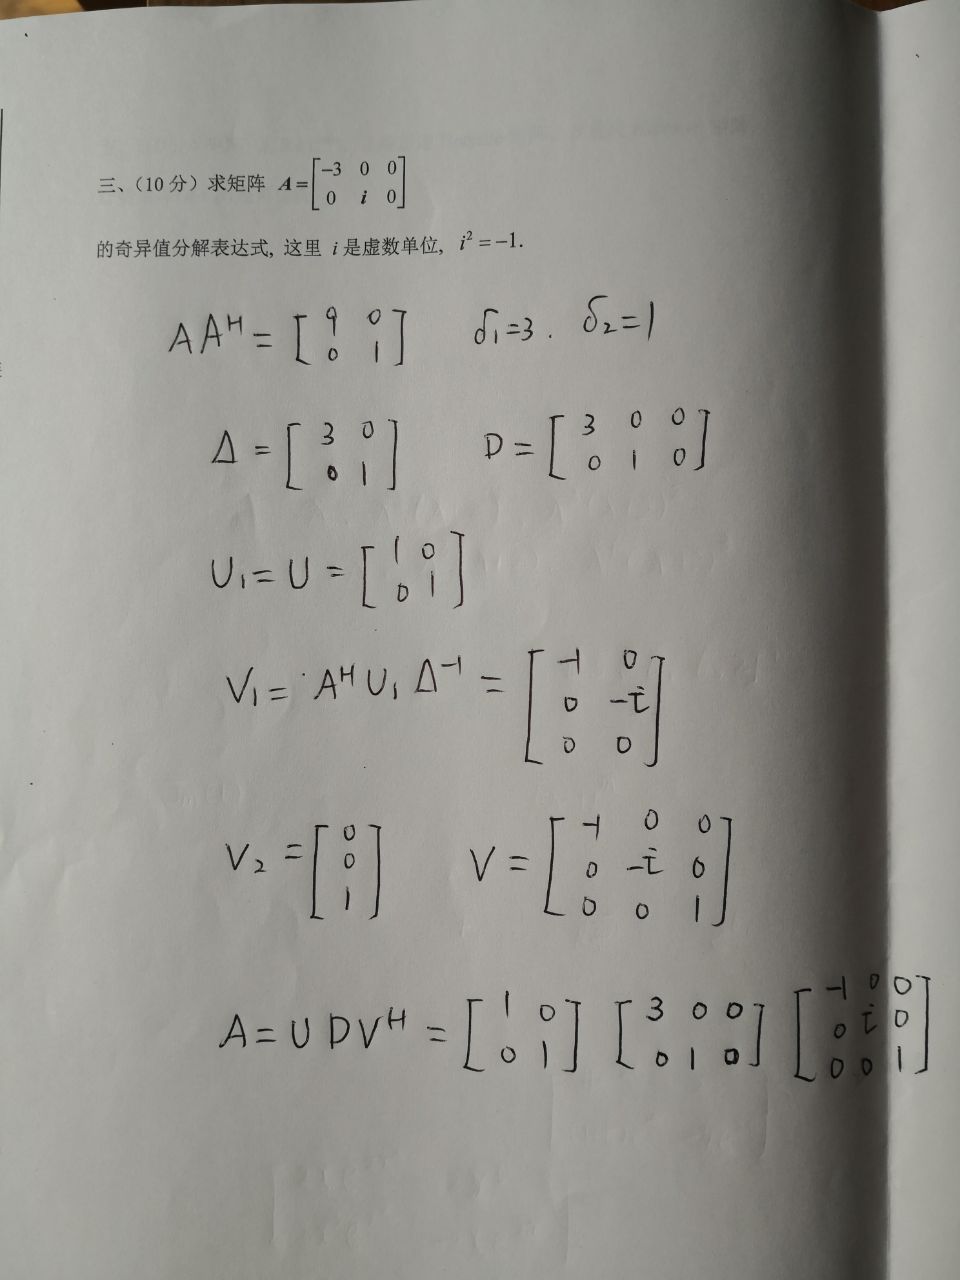 三、（10分）求矩阵 A=[−3 0 0; 0 i 0]
的奇异值分解表达式, 这里 i 是虚数单位, i² = −1.
AAᴴ = [9 0; 0 1] δ₁=3. δ₂=1
Δ = [3 0; 0 1] D = [3 0 0; 0 1 0]
U₁ = U = [1 0; 0 1]
V₁ = AᴴU₁Δ⁻¹ = [-1 0; 0 -i; 0 0]
V₂ = [0; 0; 1] V = [-1 0 0; 0 -i 0; 0 0 1]
A = UDVᴴ = [1 0; 0 1] [3 0 0; 0 1 0] [-1 0 0; 0 i 0; 0 0 1]